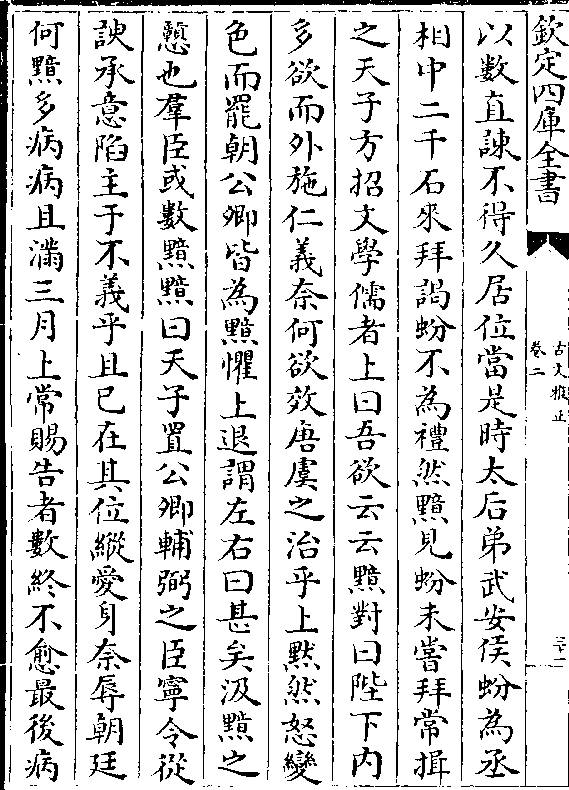 欽定四庫全書
古文雅正
卷二
三十一
以數直諫不得久居位當是時太后弟武安侯蚡為丞
相中二千石來拜謁蚡不為禮然黯見蚡未嘗拜常揖
之天子方招文學儒者上曰吾欲云云黯對曰陛下內
多欲而外施仁義奈何欲效唐虞之治乎上黙然怒變
色而罷朝公卿皆為黯懼上退謂左右曰甚矣汲黯之
戇也羣臣或數黯黯曰天子置公卿輔弼之臣寧令從
諛承意陷主于不義乎且已在其位縱愛身奈辱朝廷
何黯多病病且滿三月上常賜告者數終不愈最後病